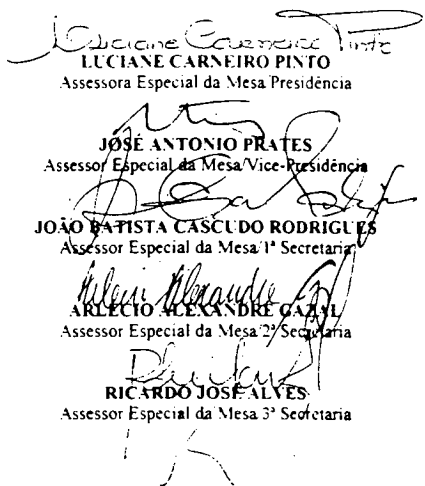 Luciane Carneiro Pinto
LUCIANE CARNEIRO PINTO
Assessora Especial da Mesa/Presidência
JOSÉ ANTONIO PRATES
Assessor Especial da Mesa/Vice-Presidência
JOÃO BATISTA CASCUDO RODRIGUES
Assessor Especial da Mesa/1ª Secretaria
Arlecio Alexandre
ARLÉCIO ALEXANDRE GAZAL
Assessor Especial da Mesa/2ª Secretaria
RICARDO JOSÉ ALVES
Assessor Especial da Mesa 3ª Secretaria